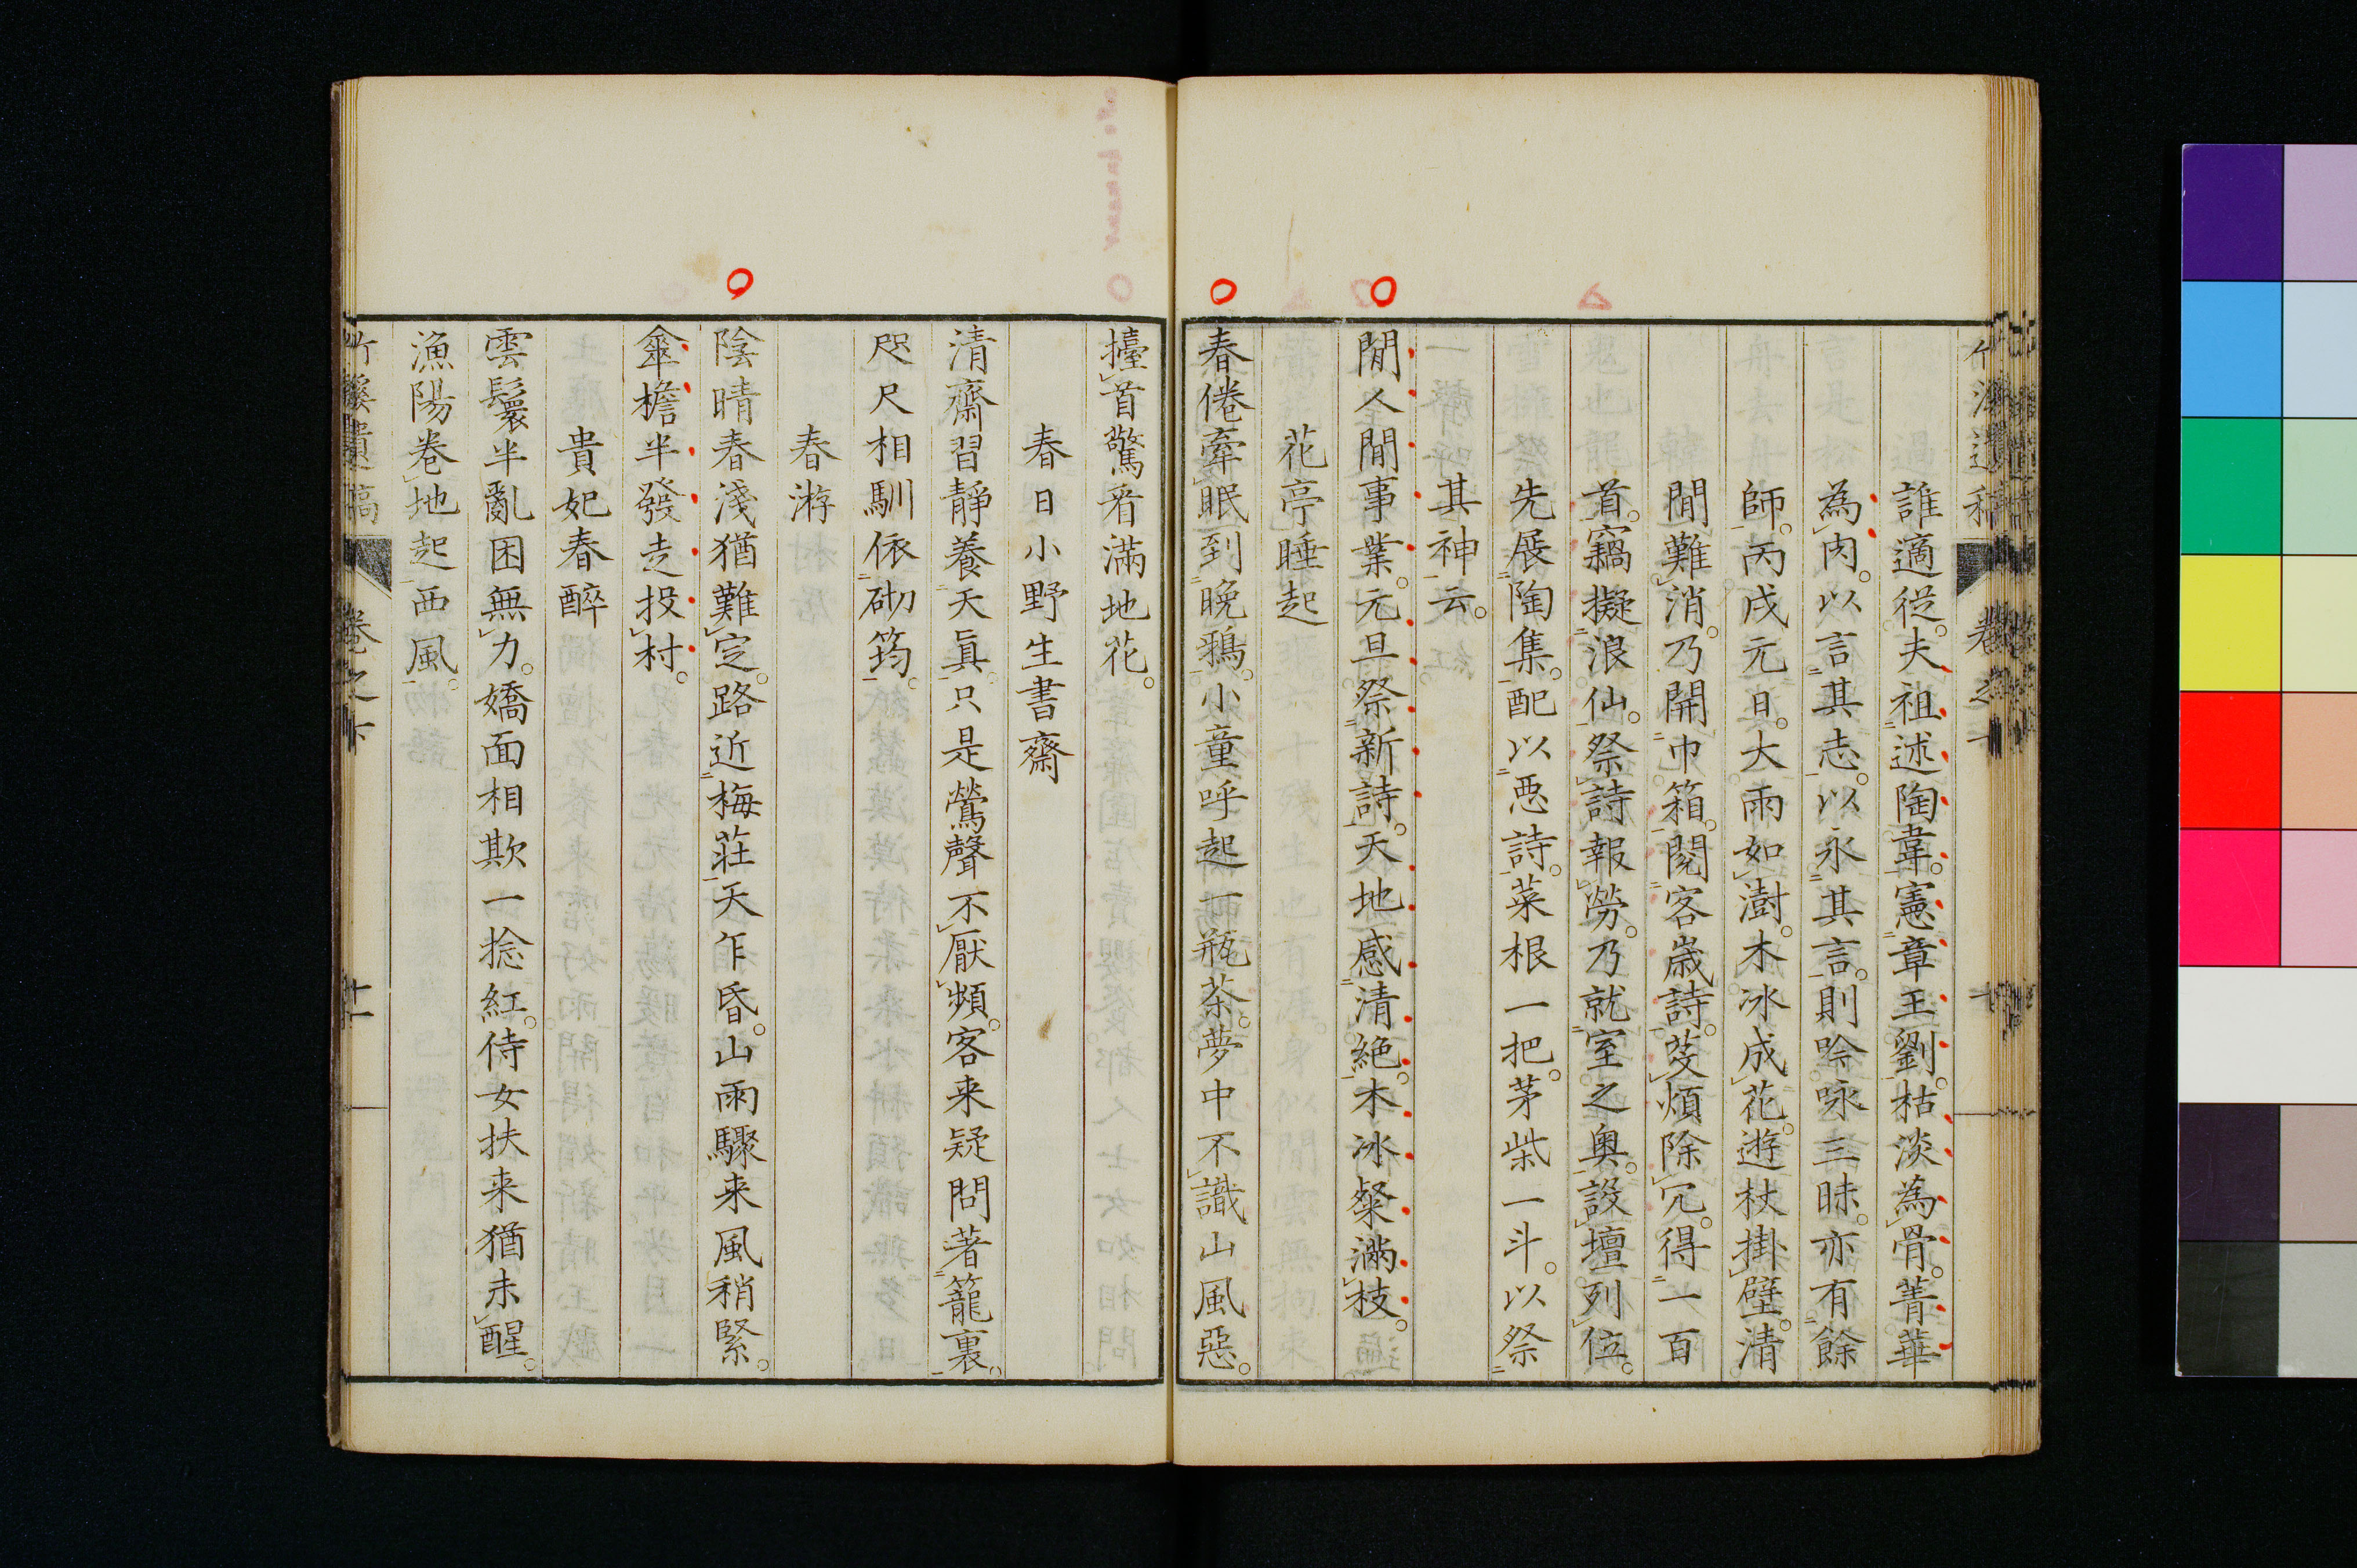 誰適從。夫祖述陶韋。憲章王劉。枯淡為骨。菁華
為肉。以言其志。以永其言。則唫咏三昧。亦有餘
師。丙戌元日。大雨如澍。木冰成花。遊杖掛壁。清
閒難消。乃開巾箱。閱客歳詩。芟煩除冗。得一百
首。竊擬浪仙。祭詩報勞。乃就室之奧。設壇列位。
先展陶集。配以悪詩。菜根一把。茅柴一斗。以祭
其神云。
閒人閒事業。元旦祭新詩。天地感清絶。木冰粲滿枝。
花亭睡起
春倦牽眠到晚鴉。小童呼起一瓶茶。夢中不識山風惡。
擡首驚看滿地花。
春日小野生書齋
清齋習靜養天眞。只是鶯聲不厭頻。客来疑問著籠裏。
咫尺相馴依砌筠。
春游
陰晴春淺猶難定。路近梅莊天乍昏。山雨驟来風稍緊。
傘檐半發走投村。
貴妃春醉
雲鬟半亂困無力。嬌面相欺一捻紅。侍女扶来猶未醒。
漁陽卷地起西風。
竹溪遺稿 卷之下 十一